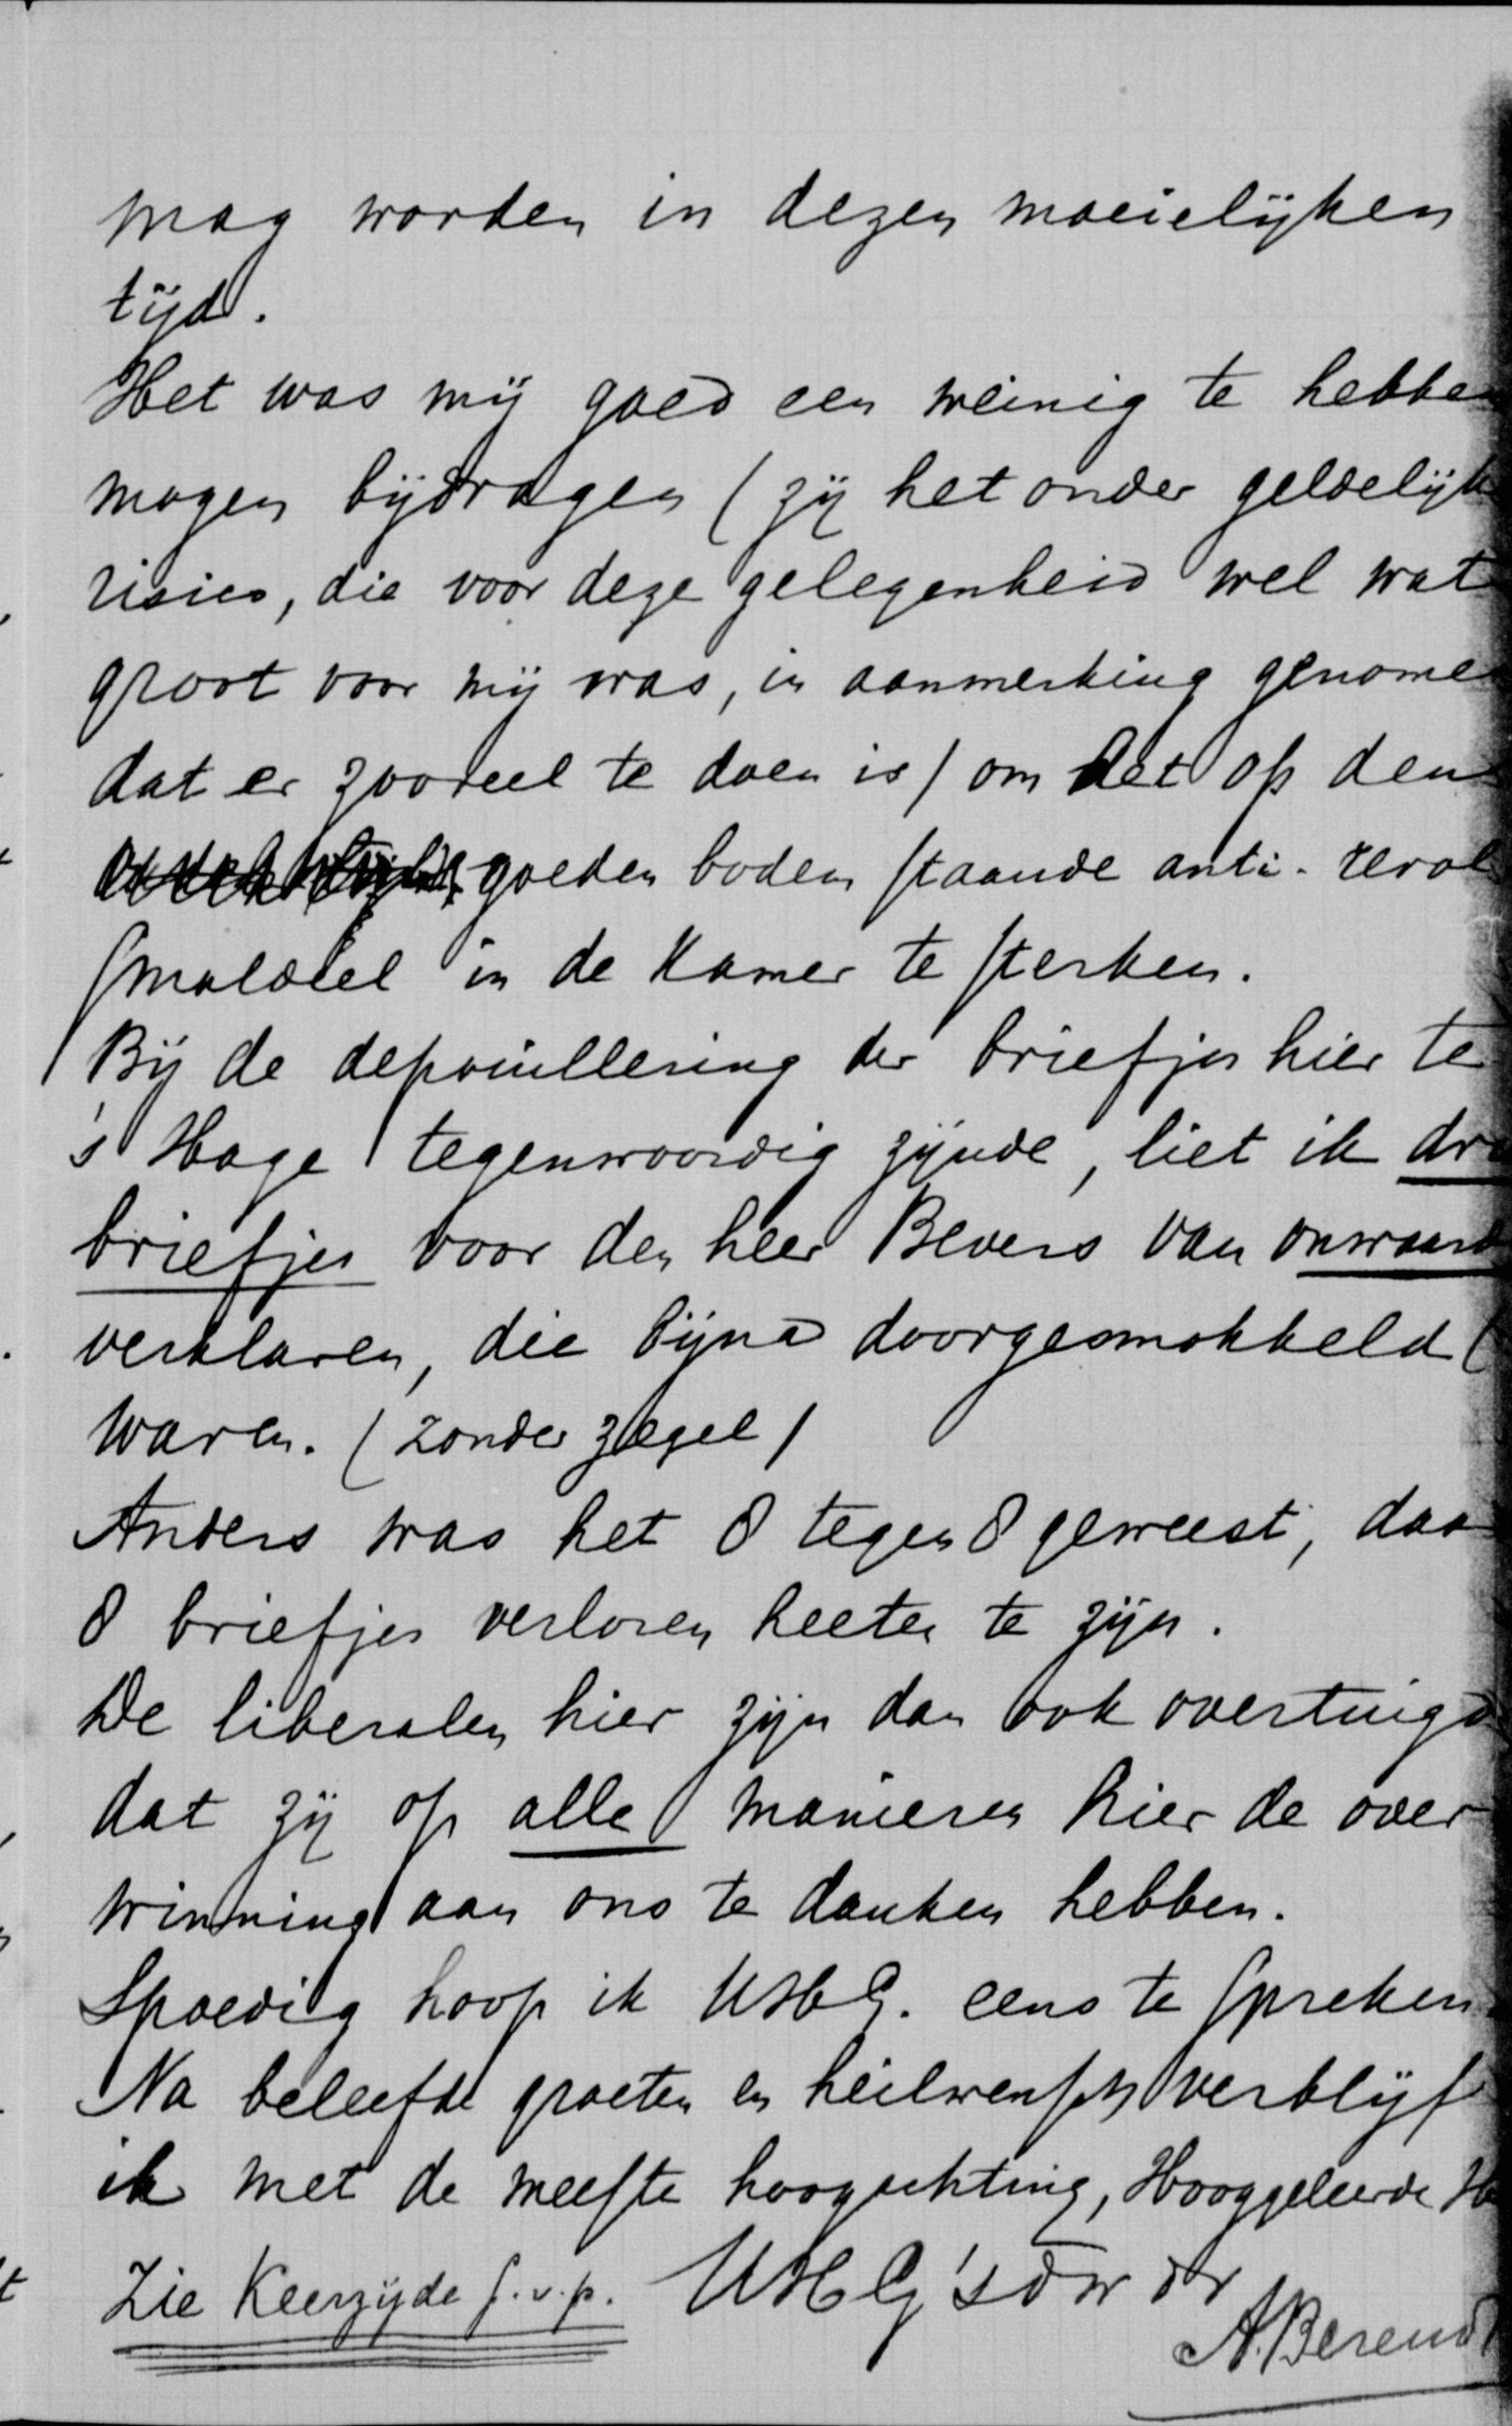 mag worden in dezen moeielijken
tijd.
Het was mij goed een weinig te hebben
mogen bijdragen (zij het onder geldelijk
risico, die voor deze gelegenheid wel wat
groot voor mij was, in aanmerking genomen
dat er zooveel te doen is) om het op den
goeden bodem staande anti-revol
smaldeel in de Kamer te sterken.
Bij de depouillering der briefjes hier te
's Hage tegenwoordig zijnde, liet ik
briefjes voor den heer Bevers van onwaarde
verklaren, die bijna doorgesmokkeld
waren. (zonder zegel)
Anders was het 8 tegen 8 geweest, daar
8 briefjes verloren heeten te zijn.
De liberalen hier zijn dan ook overtuigd
dat zij op alle manieren hier de over
winning aan ons te danken hebben.
Spoedig hoop ik UHG. eens te spreken.
Na beleefde groeten en heilwensch verblijf
ik met de meeste hoogachting, Hooggeleerde
Zie Keerzijde s.v.p. UHG's dw dr
A. Berends